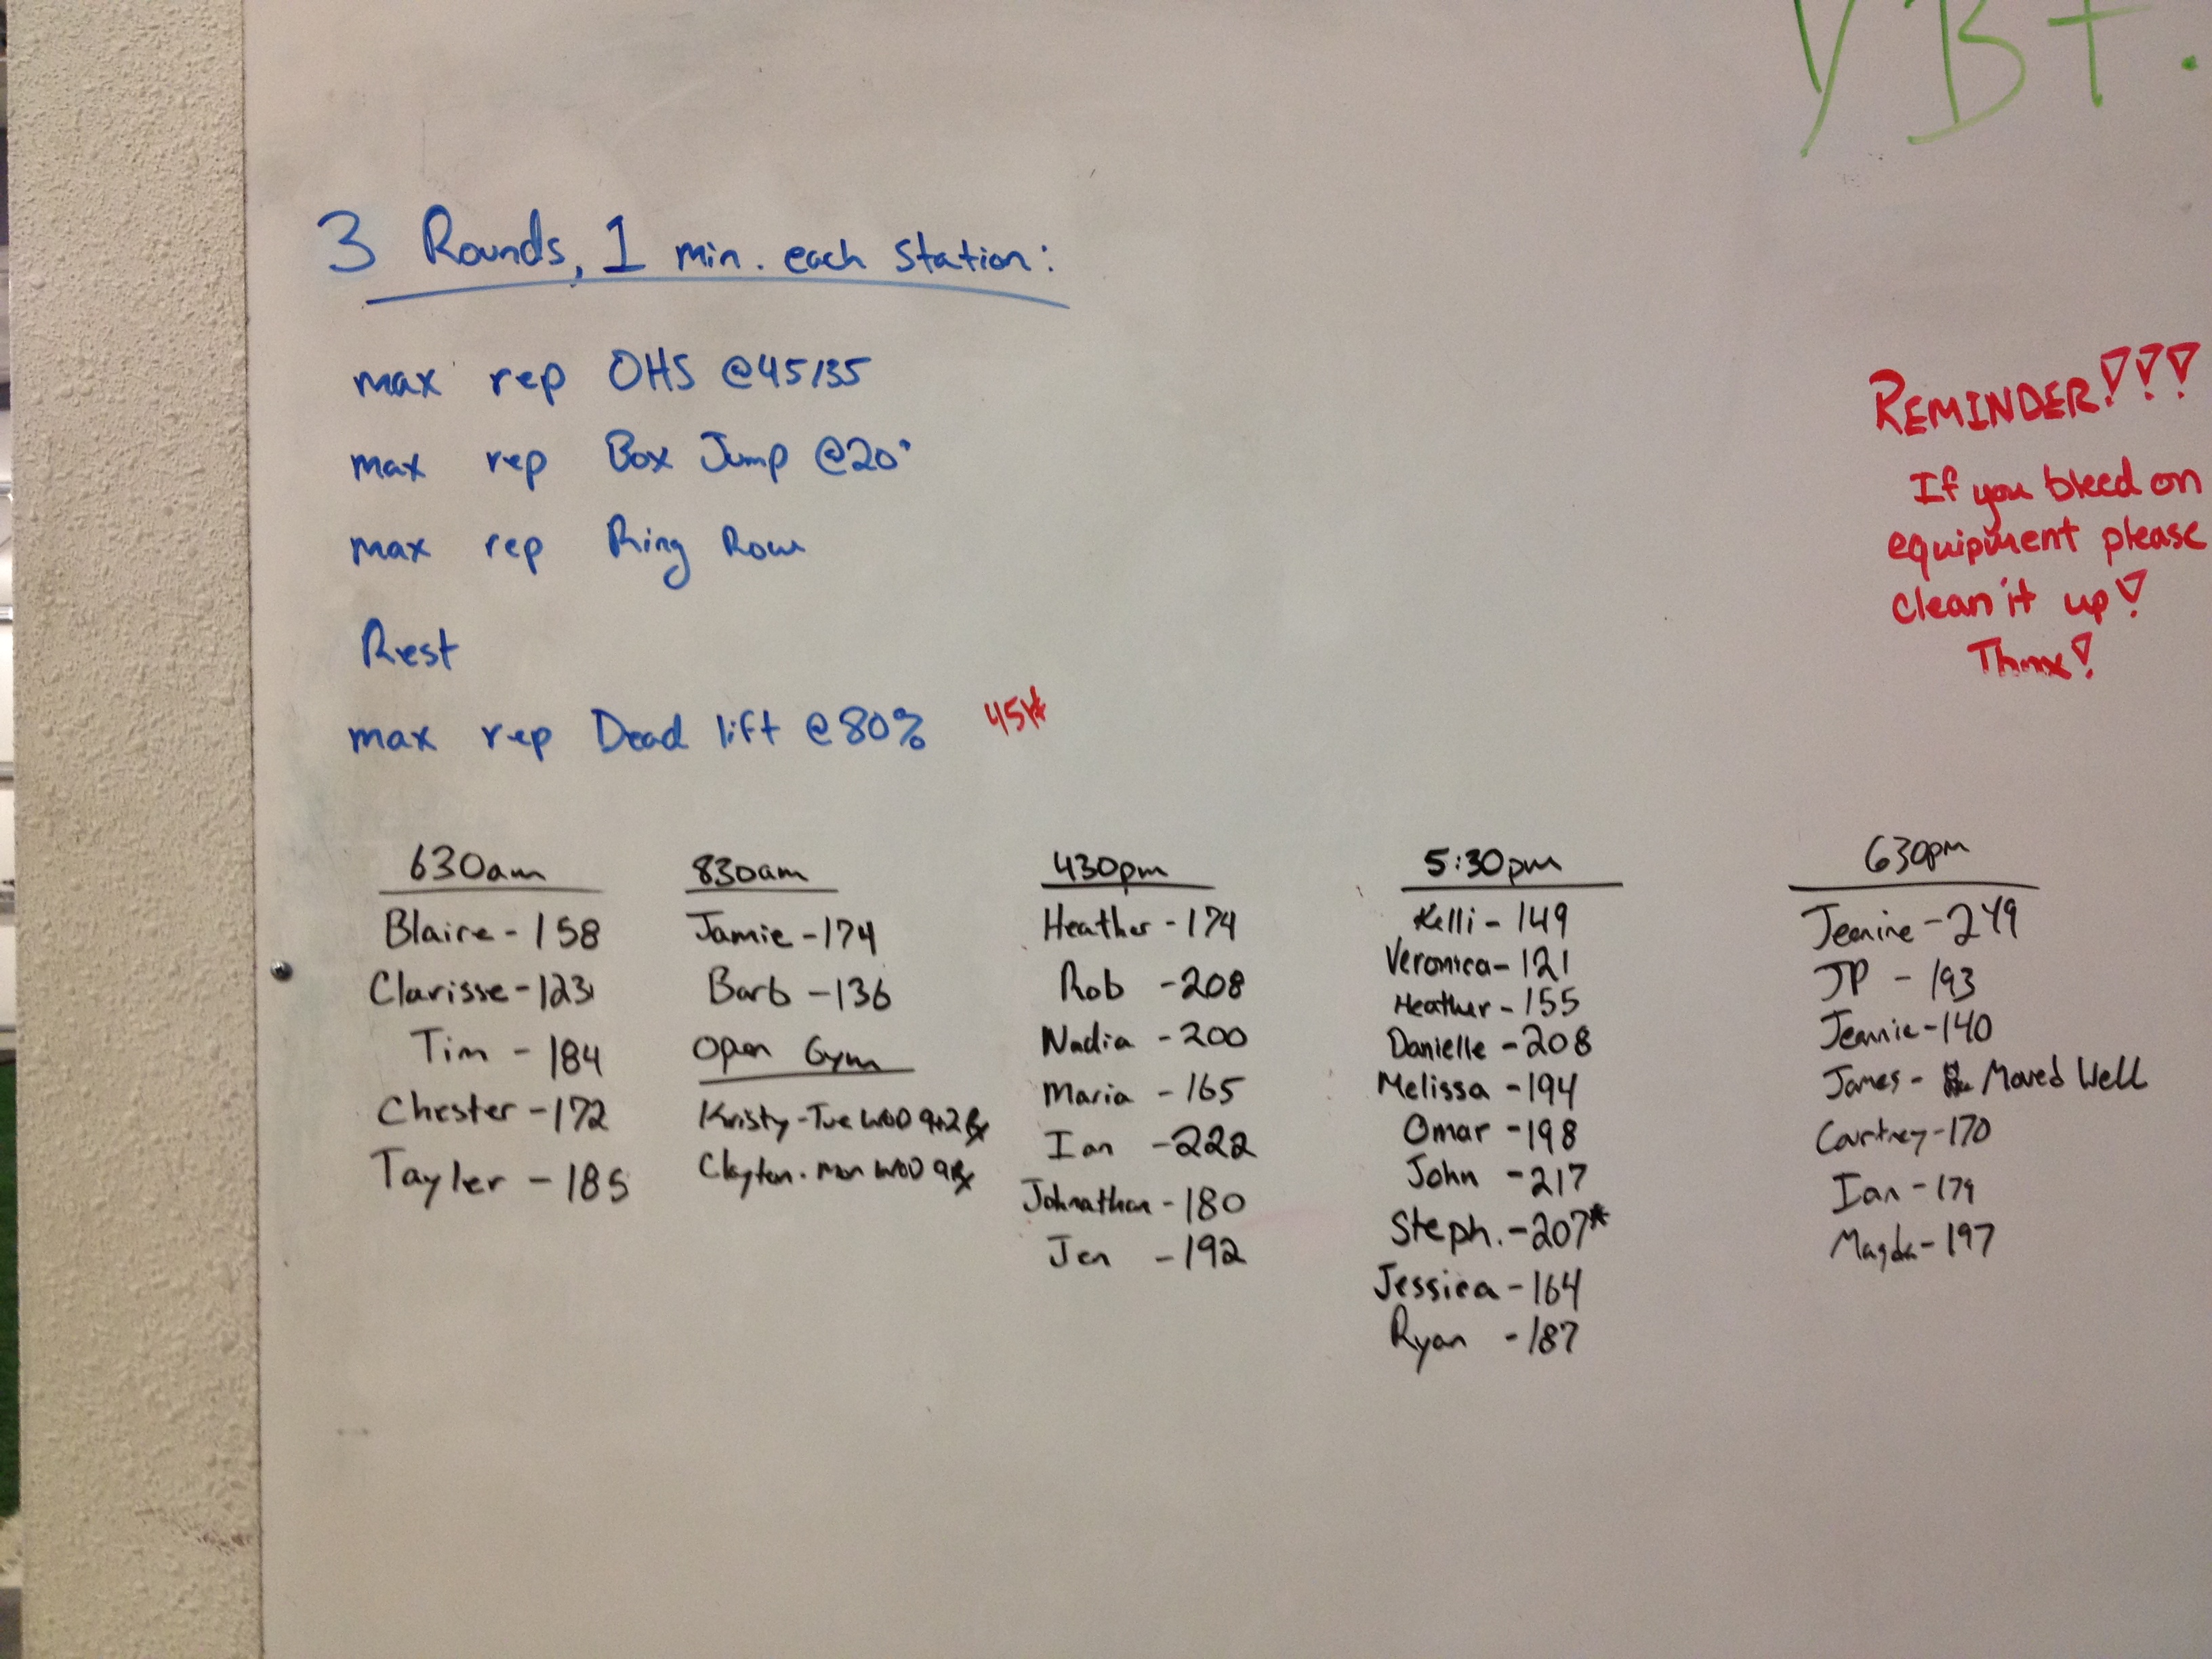 YB+.
3 Rounds, 1 min. each station:
max rep OHS @45/35
max rep Box Jump @20"
max rep Ring Row
Rest
max rep Dead lift @80%
REMINDER!!!
If you bleed on
equipment please
clean it up!
Thnx!
630am
Blaire - 158
Clarisse - 123
Tim - 184
Chester - 172
Tayler - 185
830am
Jamie - 174
Barb - 136
Open Gym
Kristy - Tue WOD 9+2 Rx
Clayton - Mon WOD 9 Rx
430pm
Heather - 174
Rob - 208
Nadia - 200
Maria - 165
Ian - 222
Johnathan - 180
Jen - 192
5:30pm
Kelli - 149
Veronica - 121
Heather - 155
Danielle - 208
Melissa - 194
Omar - 198
John - 217
Steph. - 207*
Jessica - 164
Ryan - 187
630pm
Jeanine - 249
JP - 193
Jeannie - 140
James - Moved Well
Courtney - 170
Ian - 179
Magda - 197